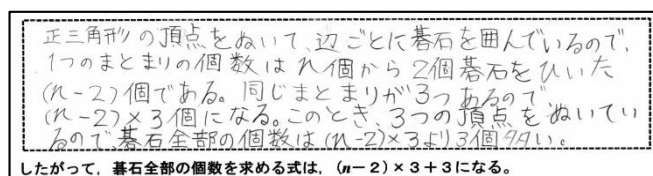 正三角形の頂点をぬいて、辺ごとに碁石を囲んでいるので、
1つのまとまりの個数はn個から2個碁石をひいた
(n-2)個である。同じまとまりが3つあるので
(n-2)×3個になる。このとき、3つの頂点をぬいてい
るので、碁石全部の個数は(n-2)×3より3個多い。
したがって，碁石全部の個数を求める式は，(n－2)×3＋3になる。